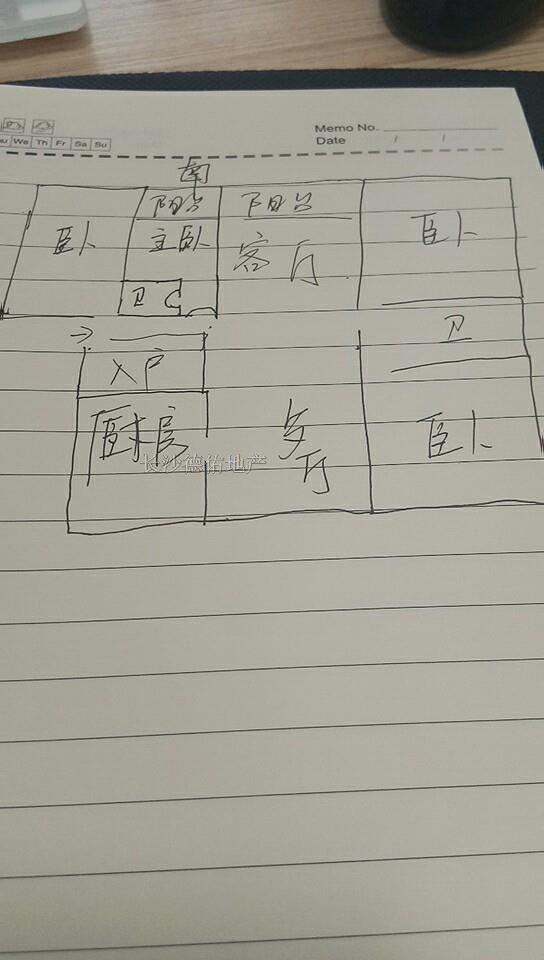 Memo No.
We Th Fr Sa Su
Date / /
南
阳台 阳台
卧 主卧 客厅 卧
卫
卫
入户
厨房 歺厅 卧
长沙德佑地产